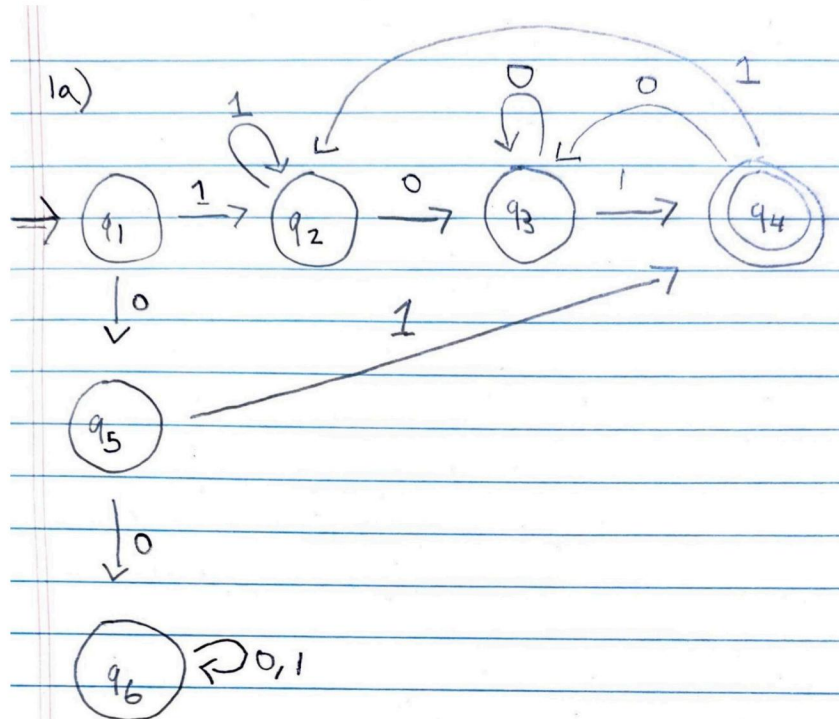 1a)
1
0
0
1
1
0
1
q1
q2
q3
q4
0
1
q5
0
q6
0,1